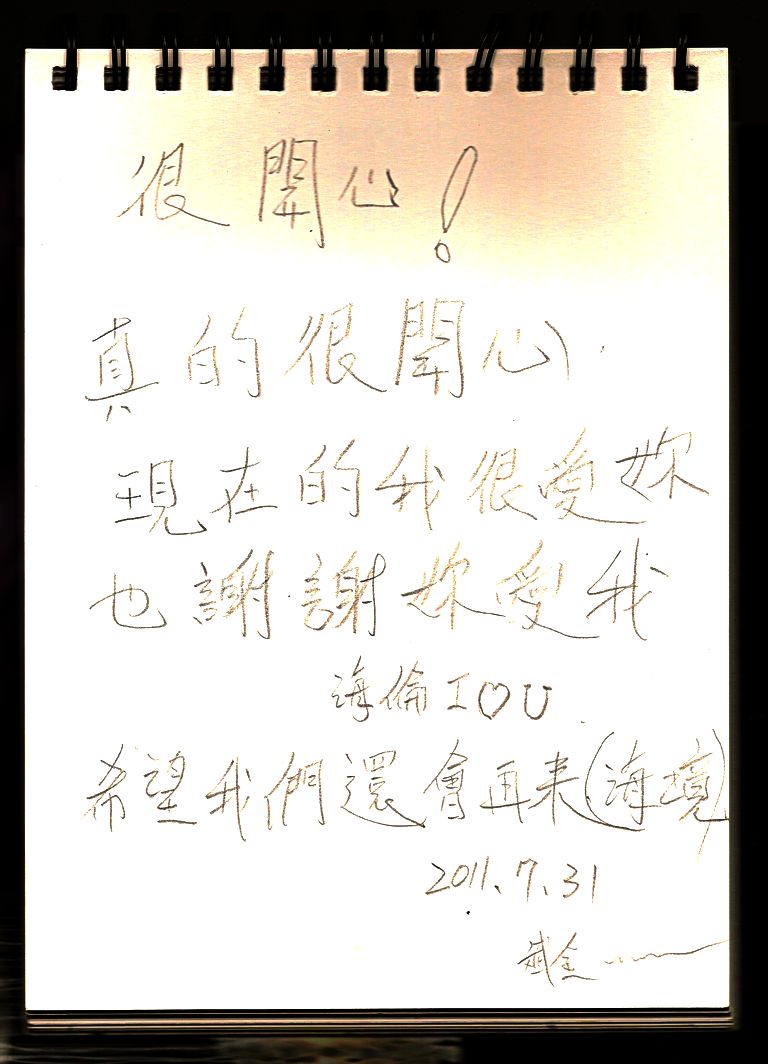 很開心!
真的很開心
現在的我很愛妳
也謝謝妳愛我
海倫 I♡U
希望我們還會再来(海境)
2011.7.31
斌全